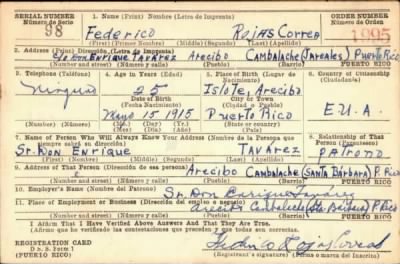 SERIAL NUMBER
Número de Serie
98
1. Name (Print) Nombre (Letra de Imprenta)
Federico Rojas Correa
(First) (Primer Nombre) (Middle) (Segundo) (Last) (Apellido)
ORDER NUMBER
Número de Orden
1995
2. Address (Print) Dirección (Letra de Imprenta)
c/o Don Enrique Tavárez Arecibo Cambalache (Jareales) Puerto Rico
(Number and street) (Número y calle) (Town) (Pueblo) PUERTO RICO
3. Telephone (Teléfono)
Ninguno
4. Age in Years (Edad)
25
Date of Birth
(Fecha Nacimiento)
Mayo 15, 1915
(Mo.) (Mes) (Day) (Día) (Yr.) (Año)
5. Place of Birth (Lugar de Nacimiento)
Islote, Arecibo
City or Town
(Ciudad o Pueblo)
Puerto Rico
(State or country)
6. Country of Citizenship
(Ciudadanía)
E.U.A.
7. Name of Person Who Will Always Know Your Address (Nombre de la Persona que siempre sabrá su dirección)
Sr. Don Enrique Tavárez
(First) (Primer Nombre) (Middle) (Segundo) (Last) (Apellido)
8. Relationship of That Person (Parentesco)
Patrono
9. Address of That Person (Dirección de esa persona)
Arecibo Cambalache (Santa Bárbara) P. Rico
(Number and street) (Número y calle) (Town) (Pueblo) PUERTO RICO
10. Employer's Name (Nombre del Patrono)
Sr. Don Enrique Tavárez
11. Place of Employment or Business (Dirección del empleo o negocio)
Arecibo Cambalache (Sta Bárbara) P. Rico
(Number and street) (Número y calle) (Town) (Pueblo) PUERTO RICO
I Affirm That I Have Verified Above Answers and That They Are True.
(Afirmo que he verificado las contestaciones que preceden y que son todas ciertas)
REGISTRATION CARD
D. S. S. Form 1
(PUERTO RICO)
Federico Rojas Correa
Registrant's signature (Firma del Inscrito)